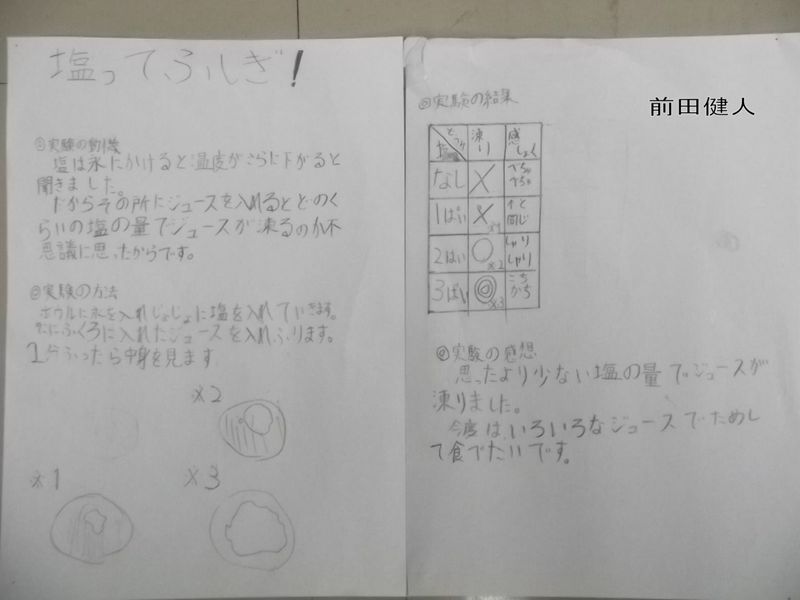 塩ってふしぎ!
①実験の動機
塩は氷にかけると温度がさらに下がると
聞きました。
だからその所にジュースを入れるとどのく
らいの塩の量でジュースが凍るのか不
思議に思ったからです。
②実験の方法
ボウルに氷を入れじょじょに塩を入れていきます。
次にふくろに入れたジュースを入れふります。
1分ふったら中身を見ます
※2
※1
※3
③実験の結果
前田健人
塩 凍り 感しょく
なし × べちゃべちゃ
1ぱい × ※1 ↑と同じ
2はい ○ ※2 しゃりしゃり
3ばい ◎ ※3 こちかち
④実験の感想
思ったより少ない塩の量でジュースが
凍りました。
今度はいろいろなジュースでためし
て食べたいです。